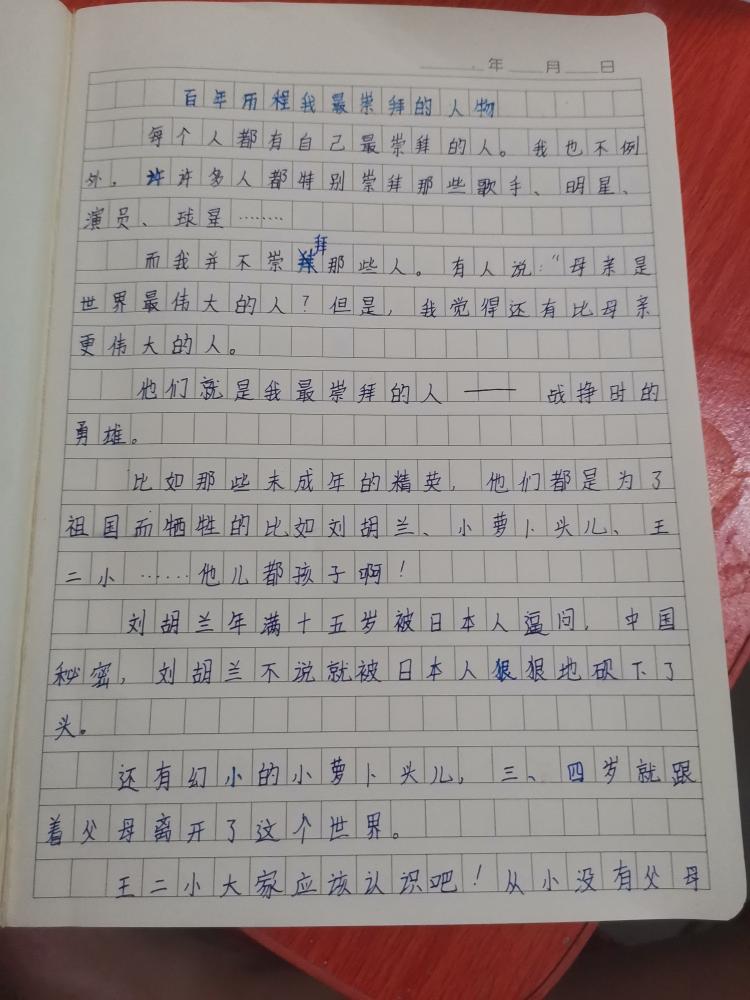 年 月 日
百年历程我最崇拜的人物
每个人都有自己最崇拜的人。我也不例
外。许许多人都特别崇拜那些歌手、明星、
演员、球星……
而我并不崇拜那些人。有人说："母亲是
世界最伟大的人？但是，我觉得还有比母亲
更伟大的人。
他们就是我最崇拜的人——战挣时的
勇雄。
比如那些未成年的精英，他们都是为了
祖国而牺牲的比如刘胡兰、小萝卜头儿、王
二小……他儿都孩子啊！
刘胡兰年满十五岁被日本人逼问，中国
秘密，刘胡兰不说就被日本人狠狠地砍下了
头。
还有幻小的小萝卜头儿，三、四岁就跟
着父母离开了这个世界。
王二小大家应该认识吧！从小没有父母